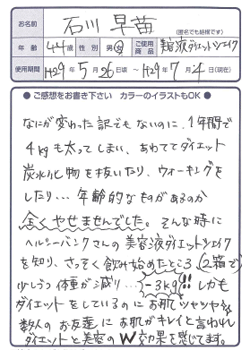 お名前
石川 早苗
(匿名でも結構です)
年齢 44才 性別 男・女 ご使用商品 美容液ダイエットシェイク
使用期間 H29年5月26日頃 ～ H29年7月4日(現在)
● ご感想をお書き下さい カラーのイラストもOK ●
なにが変わった訳でもないのに、1年間で
4kgも太ってしまい、あわててダイエット
炭水化物を抜いたり、ウォーキングを
したり… 年齢的なものがあるのか
全くやせませんでした。そんな時に
ヘルシーバンクさんの美容液ダイエットシェイク
を知り、さっそく飲み始めたところ(2箱で)
少しづつ体重が減り…-3kg!! しかも
ダイエットをしているのにお肌ツヤツヤ
数人のお友達にお肌がキレイと言われ
ダイエットと美容のW効果を感じてます。